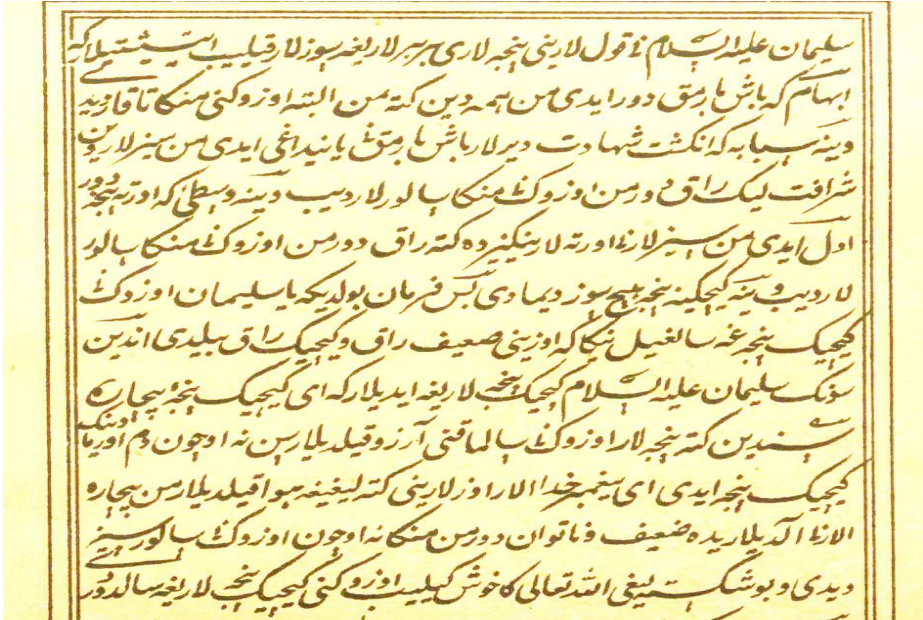 سلیمان علیه السلام نٛ قول لارینی پنجه لاری بر بر لاریغه سوز لار قیلیب ایتیشتیلار که
ابهام که باش بارمق دور ایدی من همه دین کته من البته اوزوکنی منکا تاقار دید
وینه سبابه که انکشت شهادت دیر لار باش بارمق یانیداغی ایدی من سیزلاردین
شرافت لیک راق دور من اوزوک نٛ منکا سالور لار دیب وینه وسطی که اورته پنجه دور
اول ایدی من سیز لار نٛ اورته لارینکیزده کته راق دور من اوزوک نٛ منکا سالور
لار دیب وینه کیچیکینه پنجه هیچ سوز دیمادی بس فرمان بولدیکه یا سلیمان اوزوک نٛ
کیچیک پنجه غه سالغیل نیکا که اوزینی ضعیف راق و کیچیک راق بیلدی اندین
سونک سلیمان علیه السلام کیچیک پنجه لاریغه ایدیلار که ای کیچیک پنجه بیچاره
سیندین کته پنجه لار اوزوک نٛ سالماقنی آرزو قیلدیلار سن نه اوچون دم اورمادینک
کیچیک پنجه ایدی ای پیغمبر خدا الار اوزلارینی کته لیغیغه هوا قیلدیلار من بیچاره
الار نٛ الدیلاریده ضعیف و ناتوان دور من منکا نه اوچون اوزوک نٛ سالور سیز
دیدی و بو شکسته لیغی الله تعالی کا خوش کیلیب اوزوکنی کیچیک پنجه لاریغه سالدور